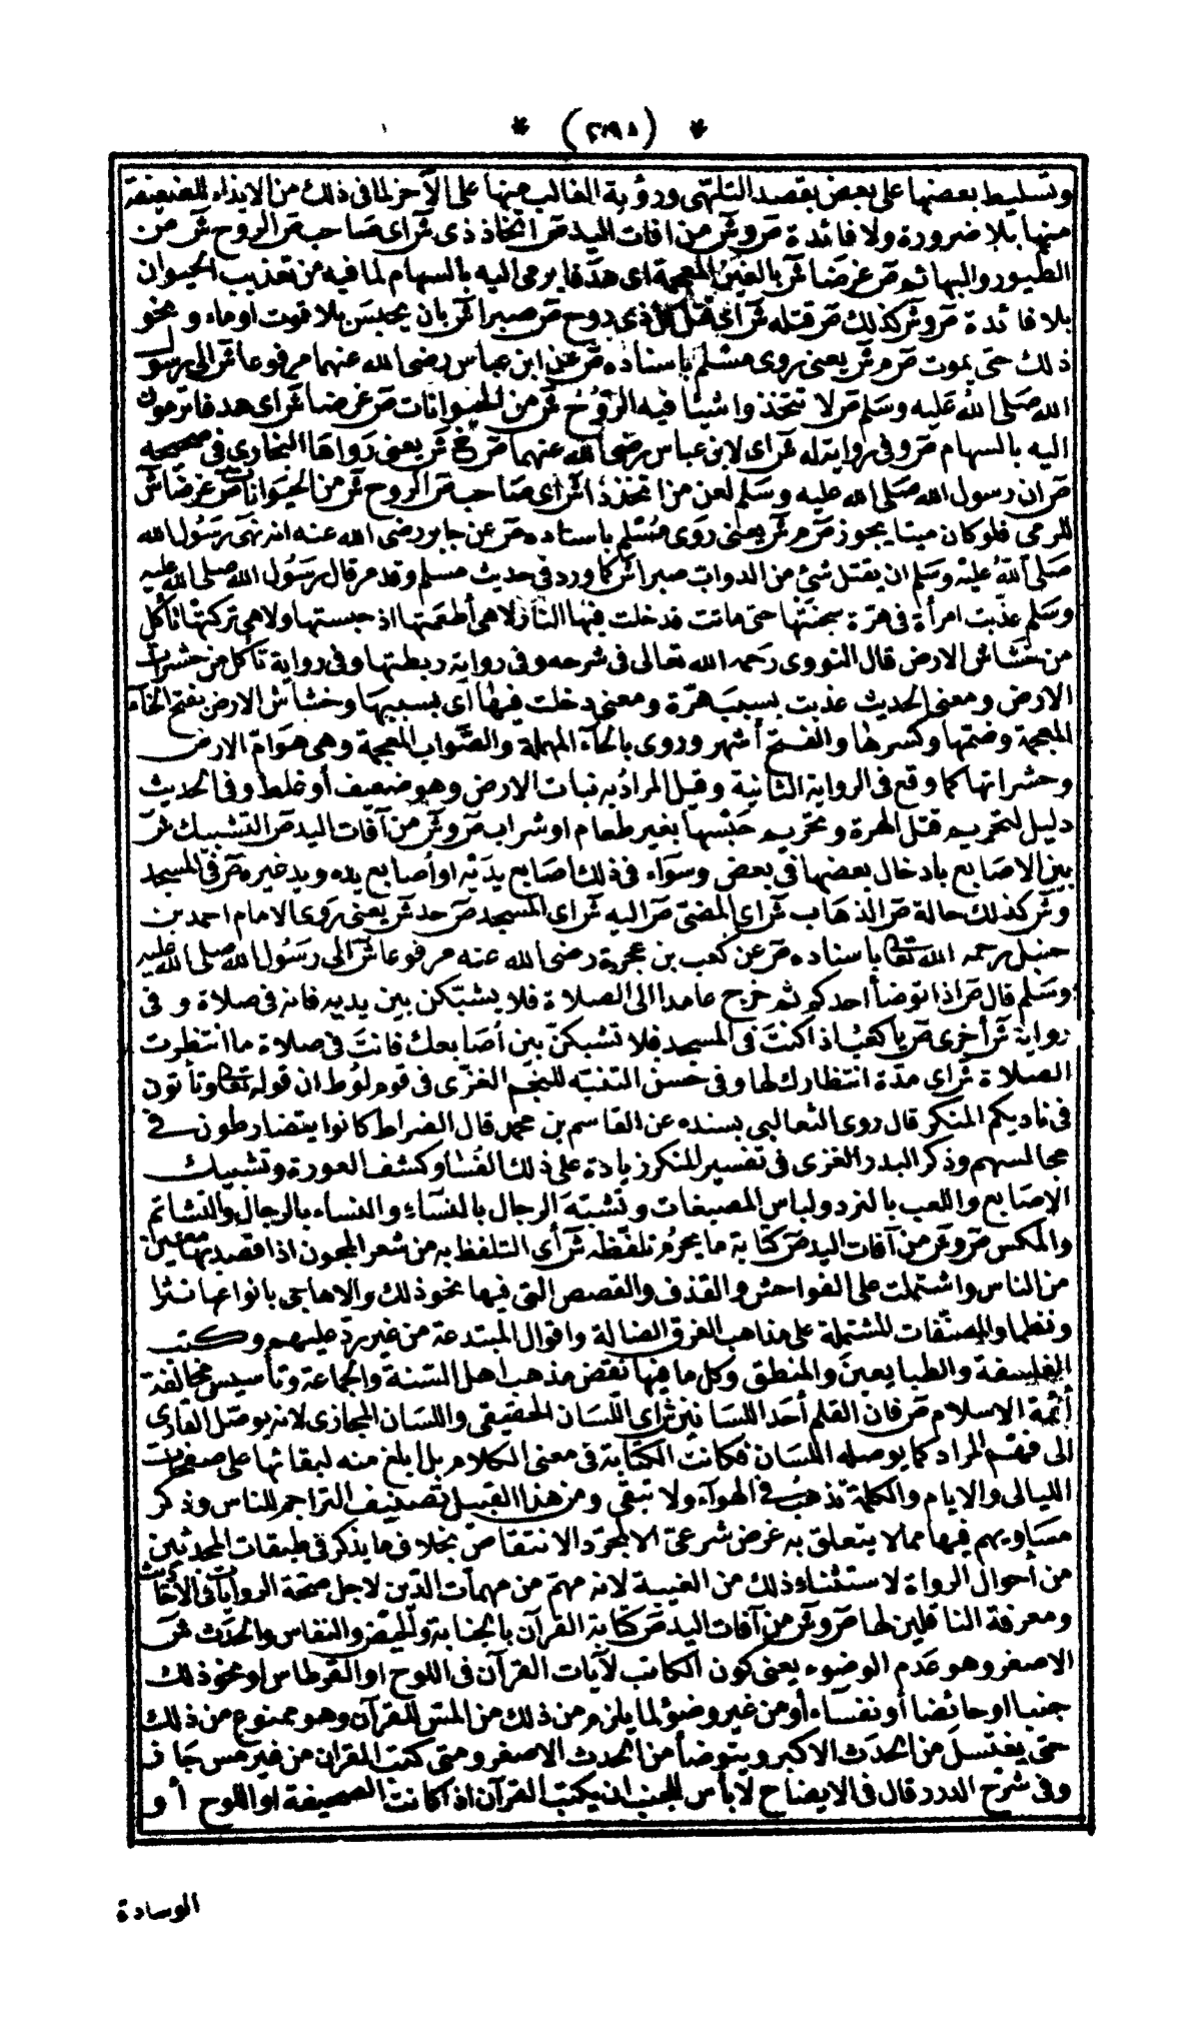 وتسليط بعضها على بعض بقصد التلهى ورؤية الغالب منها على الآخر لما فى ذلك من الايذاء للضعيفة
منها بلا ضرورة ولا فائدة ص وش من افات اليد ص اتخاذ ذى ش اى صاحب ص الروح ش من
الطيور والبهائم ص غرضا ش بالغين المعجمة اى هدفا يرمى اليه بالسهام لما فيه من تعذيب الحيوان
بلا فائدة ص وش كذلك ص قتله ش اى قتل كل ذى روح ص صبرا ش بان يحبس بلا قوت او ماء و نحو
ذلك حتى يموت ص م ش يعنى روى مسلم باسناده ص عن ابن عباس رضى الله عنهما مرفوعا ش الى رسول
الله صلى الله عليه وسلم ص لا تتخذوا شيئا فيه الروح ش من الحيوانات ص غرضا ش اى هدفا ترمون
اليه بالسهام ص وفى رواية له ش اى لابن عباس رضى الله عنهما ص خ ش يعنى رواها البخارى فى صحيحه
ص ان رسول الله صلى الله عليه وسلم لعن من اتخذ ذا ش اى صاحب ص الروح ش من الحيوانات ص غرضا ش
للرمى فلو كان ميتا يجوز ص م ش يعنى روى مسلم باسناده ص عن جابر رضى الله عنه انه نهى رسول الله
صلى الله عليه وسلم ان يقتل شئ من الدواب صبرا ش كما ورد فى حديث مسلم وقد مر قال رسول الله صلى الله عليه
وسلم عذبت امرأة فى هرة سجنتها حتى ماتت فدخلت فيها النار لا هى أطعمتها اذ حبستها ولا هى تركتها تأكل
من خشاش الارض قال النووى رحمه الله تعالى فى شرحه وفى رواية ربطتها وفى رواية تأكل من حشرات
الارض ومعنى الحديث عذبت بسبب هرة ومعنى دخلت فيها اى بسببها وخشاش الارض بفتح الخاء
المعجمة وضمها وكسرها والفتح أشهر وروى بالحاء المهملة والصواب المعجمة وهى هوام الارض
وحشراتها كما وقع فى الرواية الثانية وقيل المراد به نبات الارض وهو ضعيف أو غلط وفى الحديث
دليل لتحريم قتل الهرة وتحريم حبسها بغير طعام او شراب ص وش من آفات اليد ص التشبيك ش
بين الاصابع بادخال بعضها فى بعض وسواء فى ذلك اصابع يديه او أصابع يده ويد غيره ص فى المسجد
وش كذلك حالة ص الذهاب ش اى المضى ص اليه ش اى المسجد ص حد ش يعنى روى الامام احمد بن
حنبل رحمه الله تعالى باسناده ص عن كعب بن عجرة رضى الله عنه مرفوعا ش الى رسول الله صلى الله عليه
وسلم قال ص اذا توضأ احدكم ثم خرج عامدا الى الصلاة فلا يشبكن بين يديه فانه فى صلاة و فى
رواية ش أخرى ص يا كعب اذا كنت فى المسجد فلا تشبكن بين أصابعك فانت فى صلاة ما انتظرت
الصلاة ش اى مدة انتظارك لها وفى حسن التنبه للنجم الغزى فى قوم لوط ان قوله تعالى وتأتون
فى ناديكم المنكر قال روى الثعالبى بسنده عن القاسم بن محمد قال الضراط كانوا يتضارطون فى
مجالسهم وذكر البدر الغزى فى تفسير المنكر زيادة على ذلك الفشا وكشف العورة وتشبيك
الاصابع واللعب بالنرد ولباس المصبغات وتشبه الرجال بالنساء والنساء بالرجال والتشاتم
والمكس ص وش من آفات اليد ص كتابة ما يحرم تلفظه ش أى التلفظ به من شعر المجون اذا قصد بها معين
من الناس واشتملت على الفواحش والقذف والقصص التى فيها نحو ذلك والاهاجى بانواعها نثرا
ونظما والمصنفات المشتملة على مذاهب الفرق الضالة واقوال المبتدعة من غير رد عليهم وكتب
الفلسفة والطبايعين والمنطق وكل ما فيها نقض مذهب اهل السنة والجماعة وتأسيس مخالفة
أئمة الاسلام ص فان القلم أحد اللسانين ش اى اللسان الحقيقى واللسان المجازى لانه يوصل القارى
الى فهم المراد كما يوصله اللسان فكانت الكتابة فى معنى الكلام بل ابلغ منه لبقائها على صفحات
الليالى والايام والكلمة تذهب فى الهوآء ولا تبقى ومن هذا القبيل تصنيف التراجم للناس وذكر
مساويهم فيها مما لا يتعلق به غرض شرعى الا لمجرد الانتقاص بخلاف ما يذكر فى طبقات المحدثين
من أحوال الرواة لاستثناء ذلك من الغيبة لانه مهم من مهمات الدين لاجل صحة الروايات فى الاحاديث
ومعرفة الناقلين لها ص وش من آفات اليد ص كتابة القرآن بالجنابة والحيض والنفاس والحدث ش
الاصغر وهو عدم الوضوء يعنى كون الكاتب لآيات القرآن فى اللوح او القرطاس او نحو ذلك
جنبا او حائضا أو نفساء أو من غير وضوء لما يلزم من ذلك من المس للقرآن وهو ممنوع من ذلك
حتى يغتسل من الحدث الاكبر ويتوضأ من الحدث الاصغر ومتى كتب القران من غير مس جاز
وفى شرح الدرر قال فى الايضاح لا بأس للجنب ان يكتب القرآن اذا كانت الصحيفة او اللوح أو
الوسادة